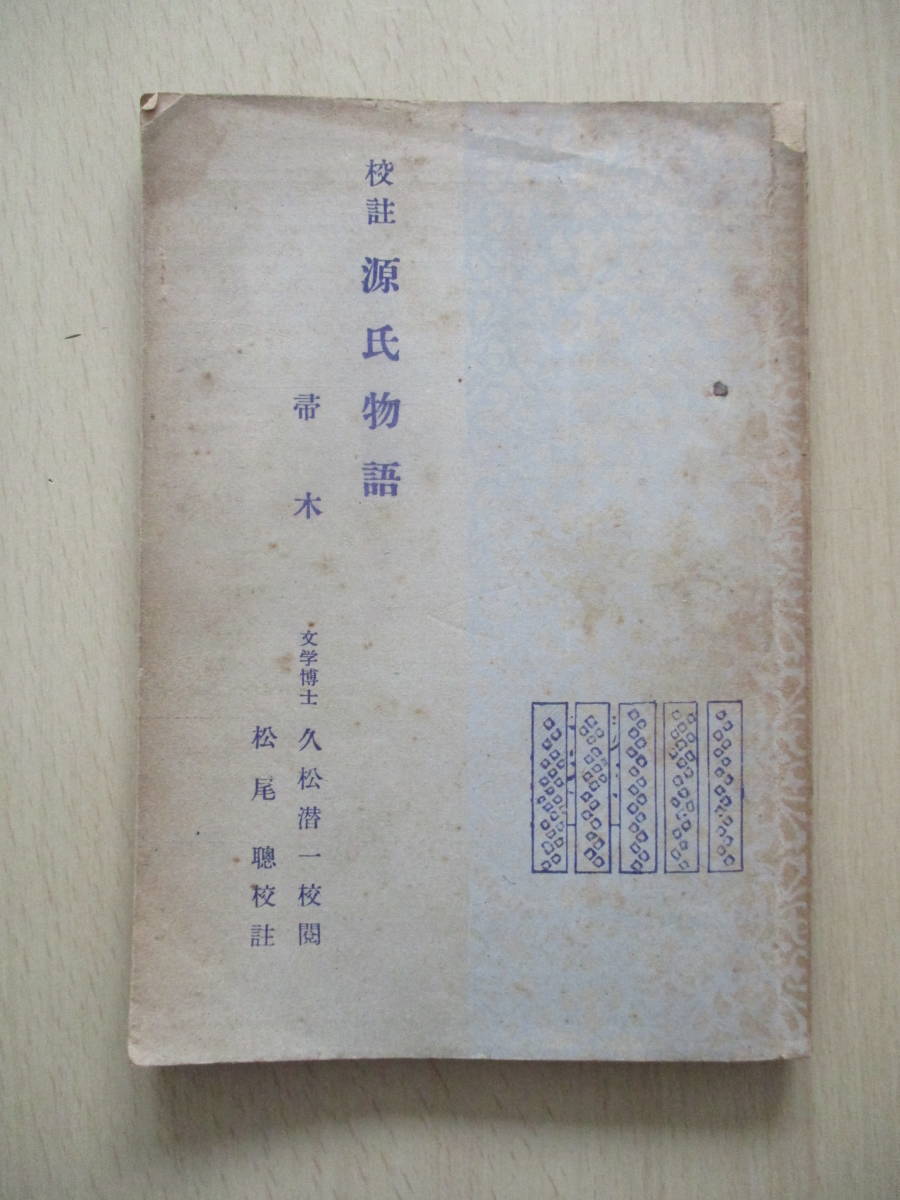 校註 源氏物語
帚木
文学博士 久松潜一校閲
松尾聰校註